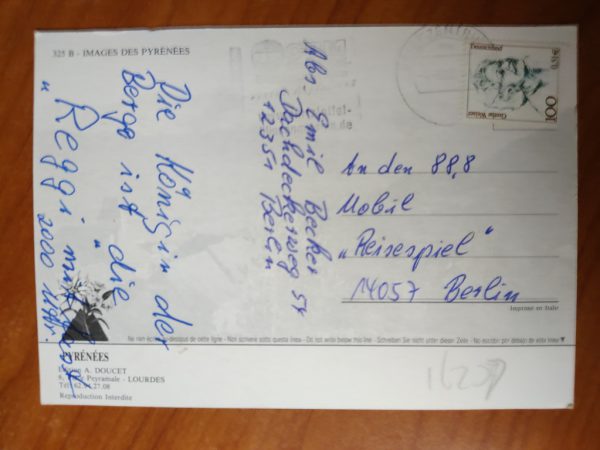 325 B - IMAGES DES PYRÉNÉES
Die Königin der
Berge ist "die
Reggi mit
" 2000 Uhr.
Abs Emil Becker
Dachdeckerweg 54
12351 Berlin
Deutschland
100
An den 88,8
Mobil
„Reisespiel"
14057 Berlin
Imprimé en Italie
Ne rien écrire au-dessous de cette ligne - Non scrivere sotto questa linea - Do not write below this line - Schreiben Sie nicht unter dieser Zeile - No escribir por debajo de esta línea
PYRÉNÉES
A. DOUCET
Peyramale - LOURDES
Reproduction Interdite